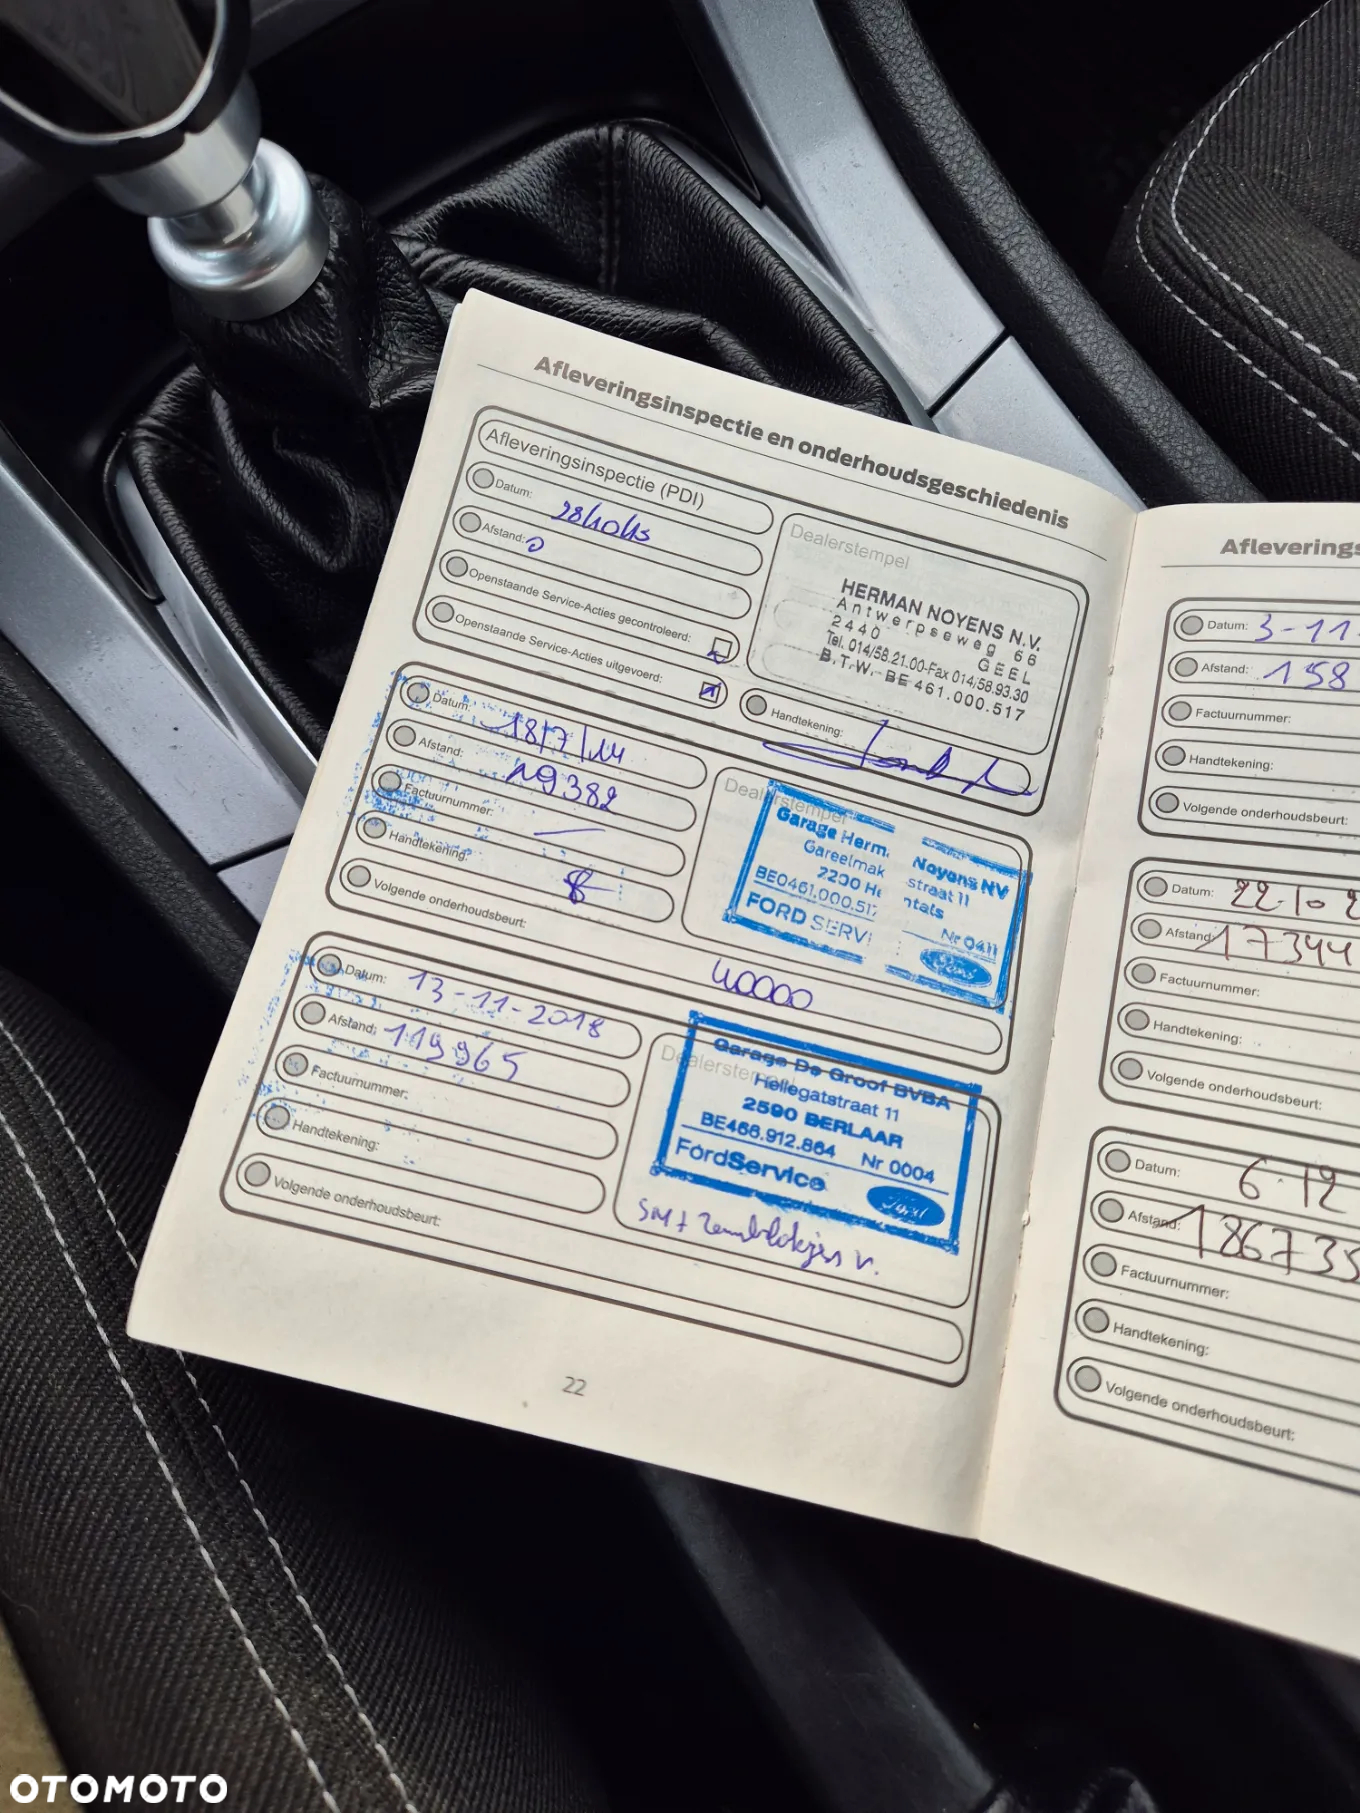 Afleveringsinspectie en onderhoudsgeschiedenis
Afleveringsinspectie (PDI)
Datum: 28/10/13
Afstand: 0
Openstaande Service-Acties gecontroleerd:
Openstaande Service-Acties uitgevoerd:
Dealerstempel
HERMAN NOYENS N.V.
Antwerpseweg 66
2440 GEEL
Tel. 014/58.21.00-Fax 014/58.93.30
B.T.W. BE 461.000.517
Handtekening:
Datum: 18/7/14
Afstand: 19382
Factuurnummer:
Handtekening:
Volgende onderhoudsbeurt: 40000
Dealerstempel
Garage Herm. Noyens NV
Gareelmak straat 11
2200 He ntals
BE0461.000.517 Nr 0411
FORD SERVI
Ford
Datum: 13-11-2018
Afstand: 119965
Factuurnummer:
Handtekening:
Volgende onderhoudsbeurt:
Dealerstempel
Garage De Groof BVBA
Hellegatstraat 11
2590 BERLAAR
BE466.912.864 Nr 0004
FordService
Ford
22
Afleverings
Datum: 3-11-
Afstand: 158
Factuurnummer:
Handtekening:
Volgende onderhoudsbeurt:
Datum: 22-10-2
Afstand: 17344
Factuurnummer:
Handtekening:
Volgende onderhoudsbeurt:
Datum: 6-12
Afstand: 186735
Factuurnummer:
Handtekening:
Volgende onderhoudsbeurt:
OTOMOTO